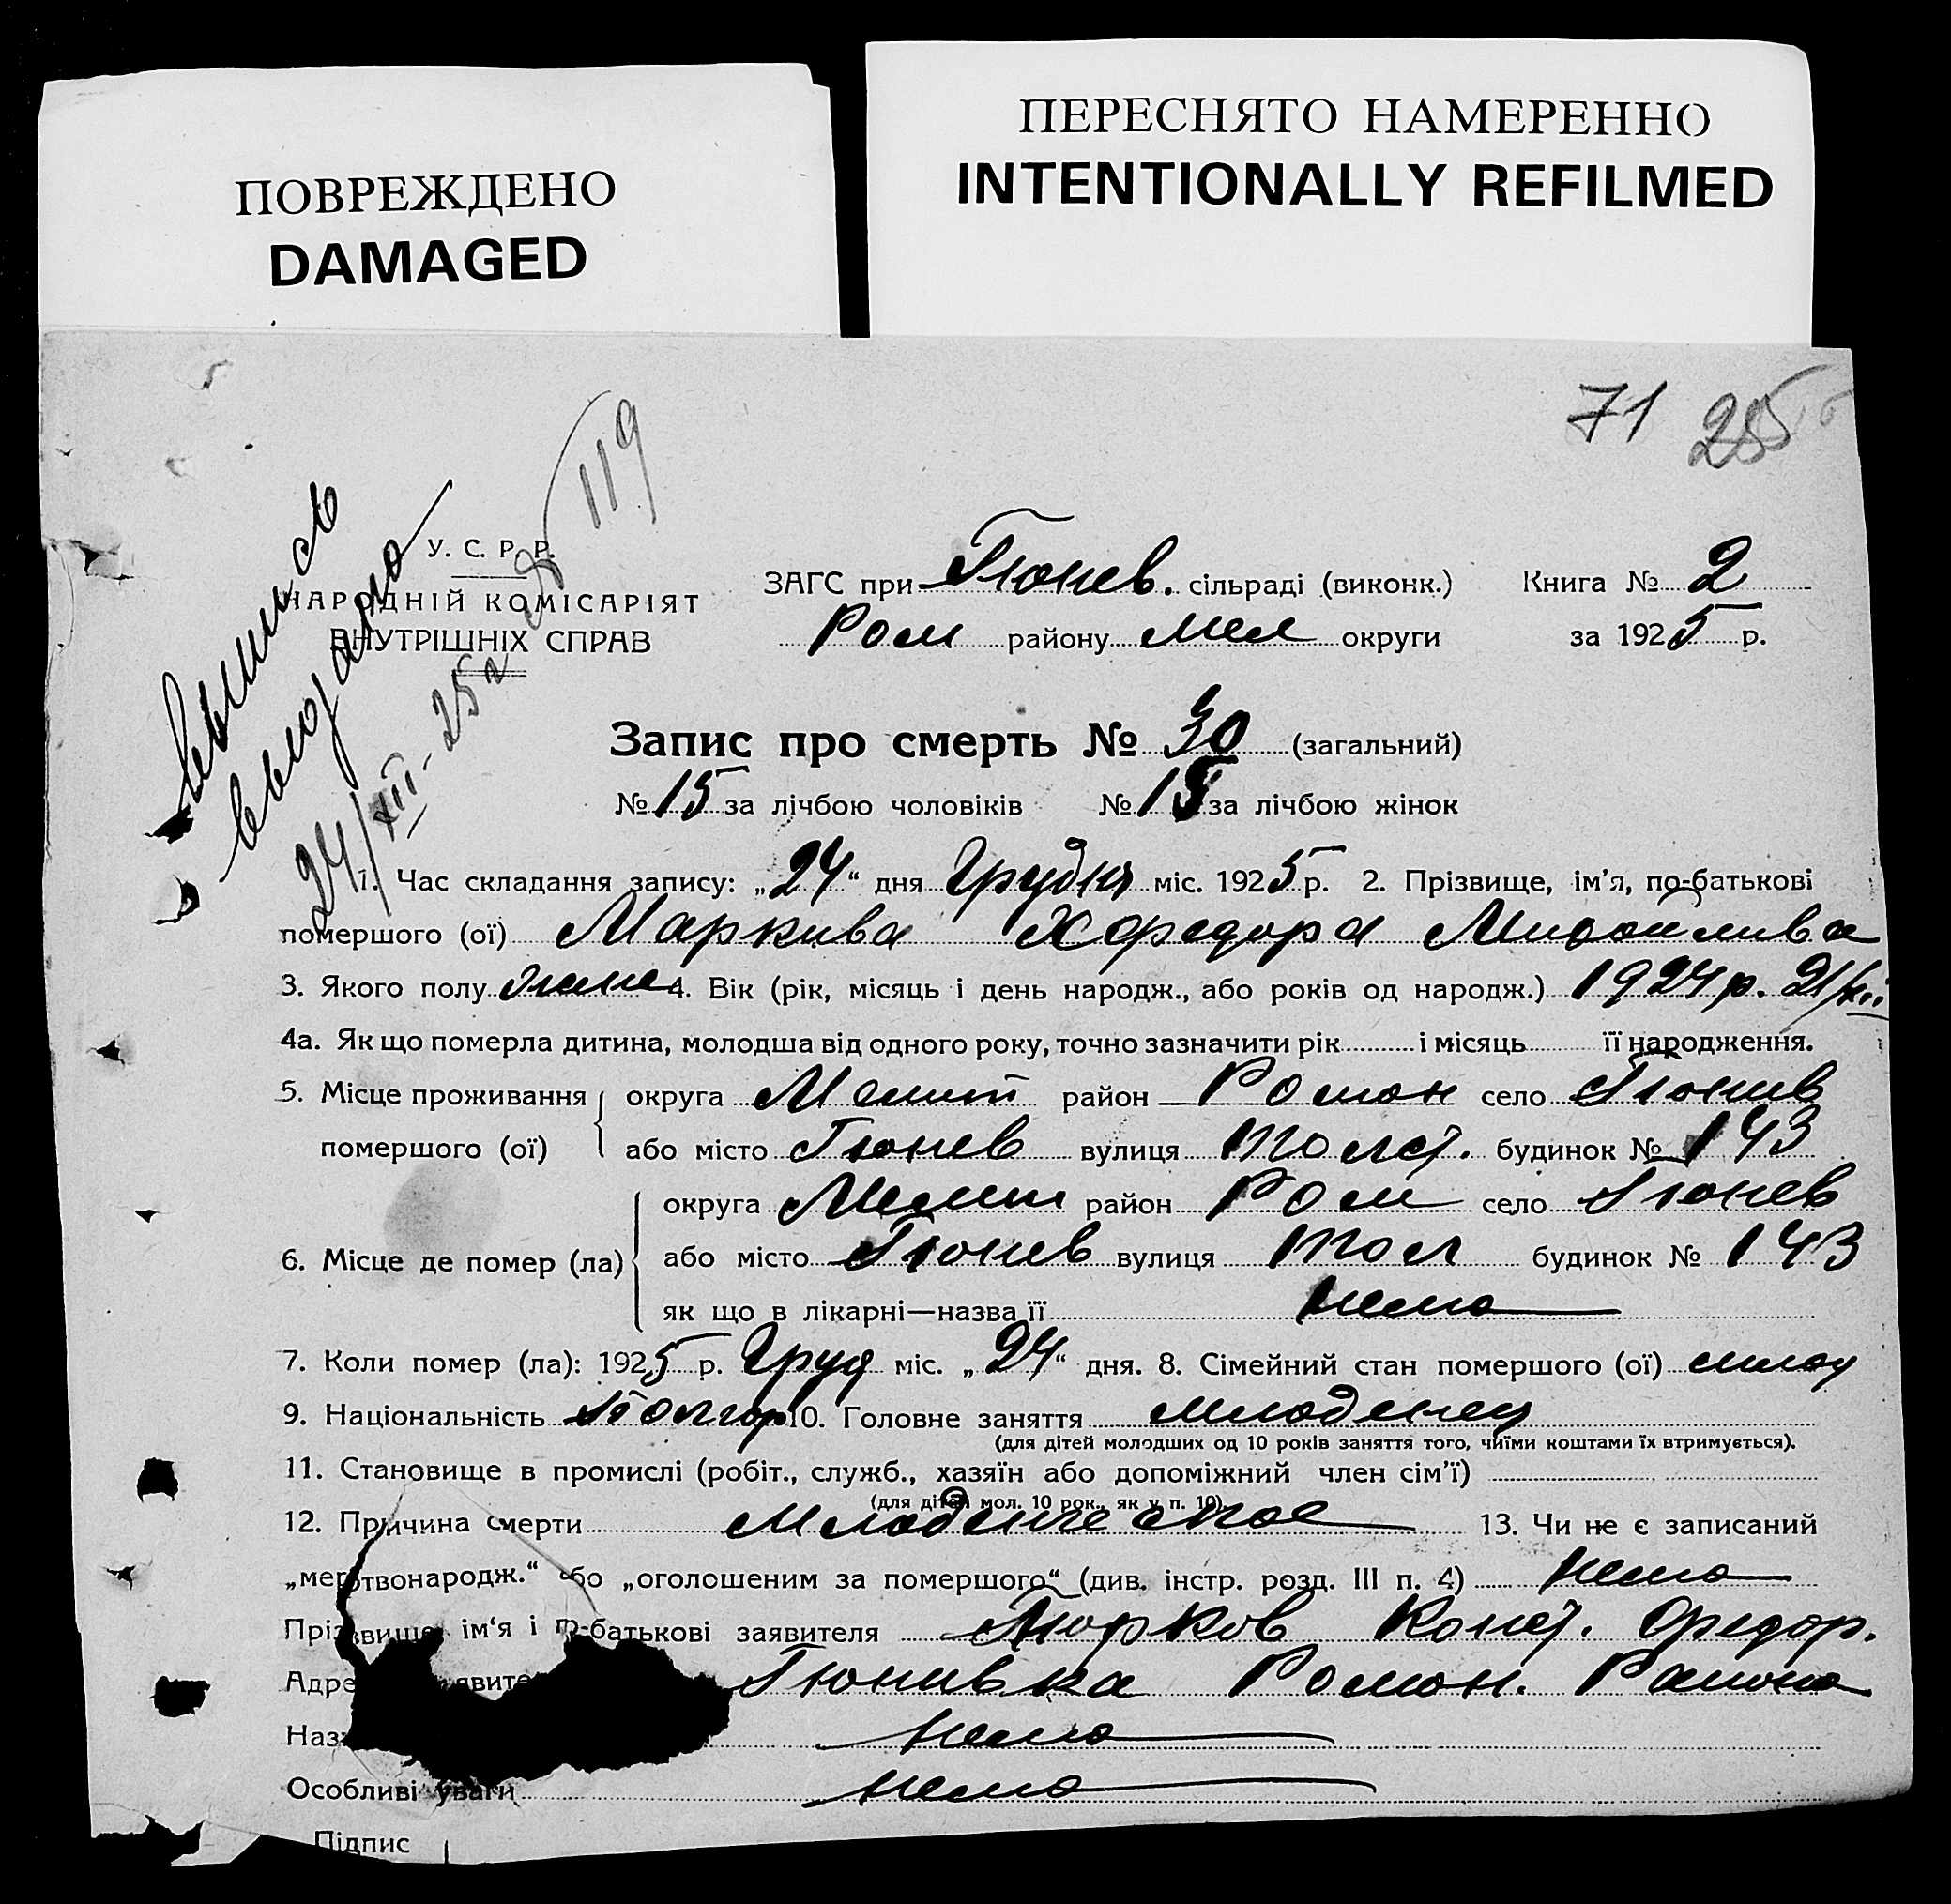 ПОВРЕЖДЕНО
DAMAGED
ПЕРЕСНЯТО НАМЕРЕННО
INTENTIONALLY REFILMED
71 25
119
выпись
выдано
24/XII-25 г
У. С. Р. Р.
НАРОДНІЙ КОМІСАРІЯТ
ВНУТРІШНІХ СПРАВ
ЗАГС при Гюнев. сільраді (виконк.) Книга № 2
Ром району Мел округи за 1925 р.
Запис про смерть № 30 (загальний)
№ 15 за лічбою чоловіків № 15 за лічбою жінок
1. Час складання запису: „24“ дня Грудня міс. 1925 р. 2. Прізвище, ім’я, по-батькові
помершого (ої) Маркива Хфедора
3. Якого полу жине 4. Вік (рік, місяць і день народж., або років од народж.) 1924 р. 21/XII
4а. Як що померла дитина, молодша від одного року, точно зазначити рік і місяць її народження.
5. Місце проживання округа Мелит район Роман село Гюнив
помершого (ої) або місто Гюнев вулиця Толст. будинок № 143
округа Мелит район Ром село Гюнев
6. Місце де помер (ла) або місто Гюнив вулиця Тол будинок № 143
як що в лікарні—назва її нема
7. Коли помер (ла): 1925 р. Груд міс. „24“ дня. 8. Сімейний стан помершого (ої) млад
9. Національність Болгар 10. Головне заняття младенец
(для дітей молодших од 10 років заняття того, чиїми коштами їх втримується).
11. Становище в промислі (робіт., служб., хазяїн або допоміжний член сім’ї)
(для дітей мол. 10 рок., як у п. 10)
12. Причина смерти Младенческое 13. Чи не є записаний
„мертвонародж.“ або „оголошеним за помершого“ (див. інстр. розд. III п. 4) нема
Прізвище, ім‘я і по-батькові заявителя Марков Конст. Федор.
Адре явите Гюнивка Роман. Района
Наз нема
Особливі уваги нема
Підпис